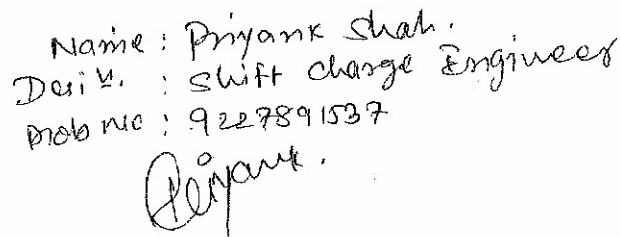 Name : Priyank Shah.
Desi N. : Shift charge Engineer
Mob no : 9227891537
Priyank.